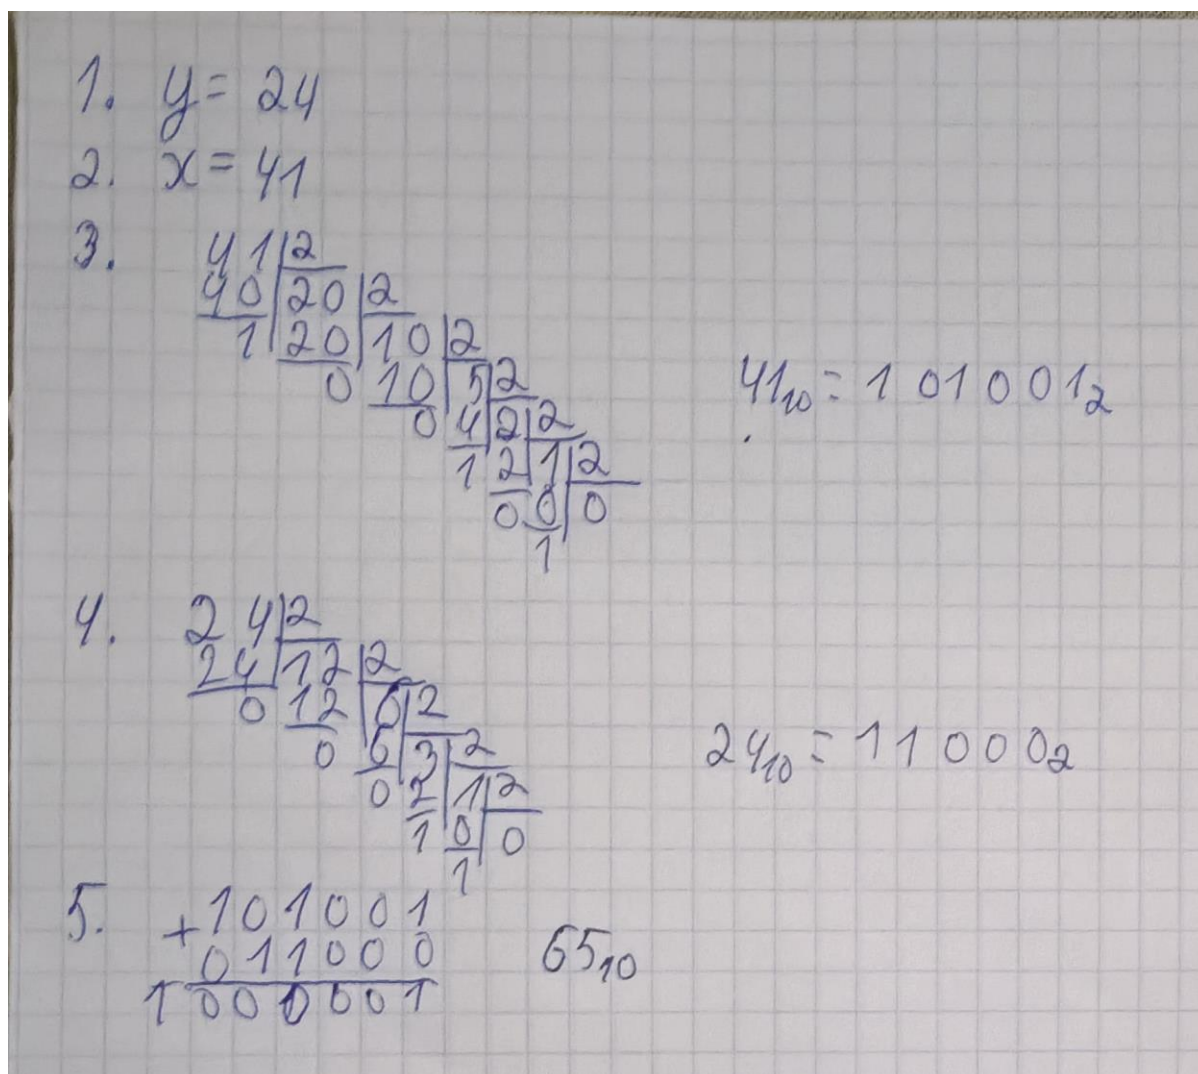 1. y = 24
2. x = 41
3. 41 2
40 20 2
1 20 10 2
0 10 5 2
0 4 2 2
1 2 1 2
0 0 0
1
41₁₀ = 101001₂
4. 24 2
24 12 2
0 12 6 2
0 6 3 2
0 2 1 2
1 0 0
1
24₁₀ = 11000₂
5. + 101001
011000
1000001
65₁₀